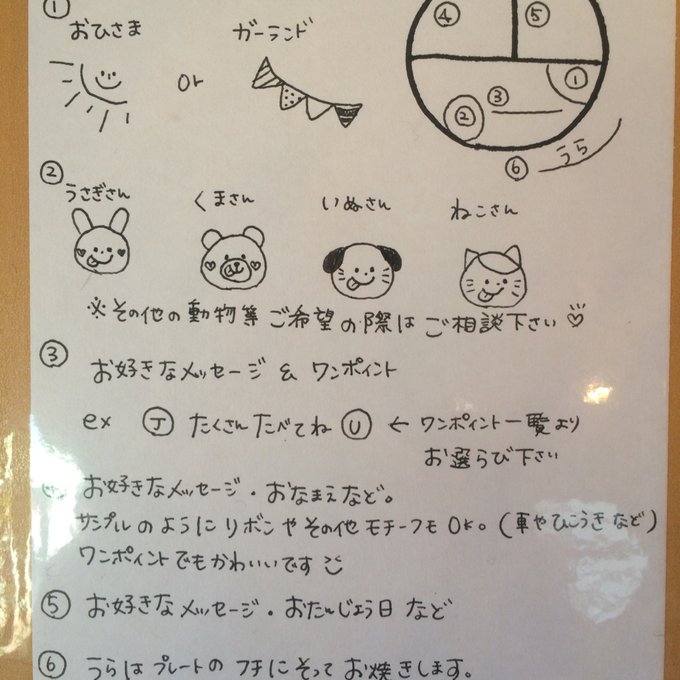 ①
おひさま or ガーランド
④ ⑤
③ ①
②
⑥ うら
②
うさぎさん くまさん いぬさん ねこさん
※その他の動物等ご希望の際はご相談下さい♡
③
お好きなメッセージ & ワンポイント
ex Ⓙ たくさんたべてね Ⓤ ← ワンポイント一覧より
お選らび下さい
お好きなメッセージ・おなまえなど。
サンプルのようにリボンやその他モチーフもOK。(車やひこうきなど)
ワンポイントでもかわいいです
⑤ お好きなメッセージ・おたんじょう日など
⑥ うらはプレートのフチにそってお焼きします。